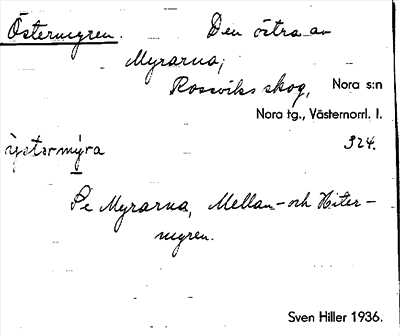 Östermyren. Den östra av
Myrarna,
Rossviks skog, Nora s:n
Nora tg., Västernorrl. l.
324.
östərmýra
Se Myrarna, Mellan- och Hiter-
myren.
Sven Hiller 1936.